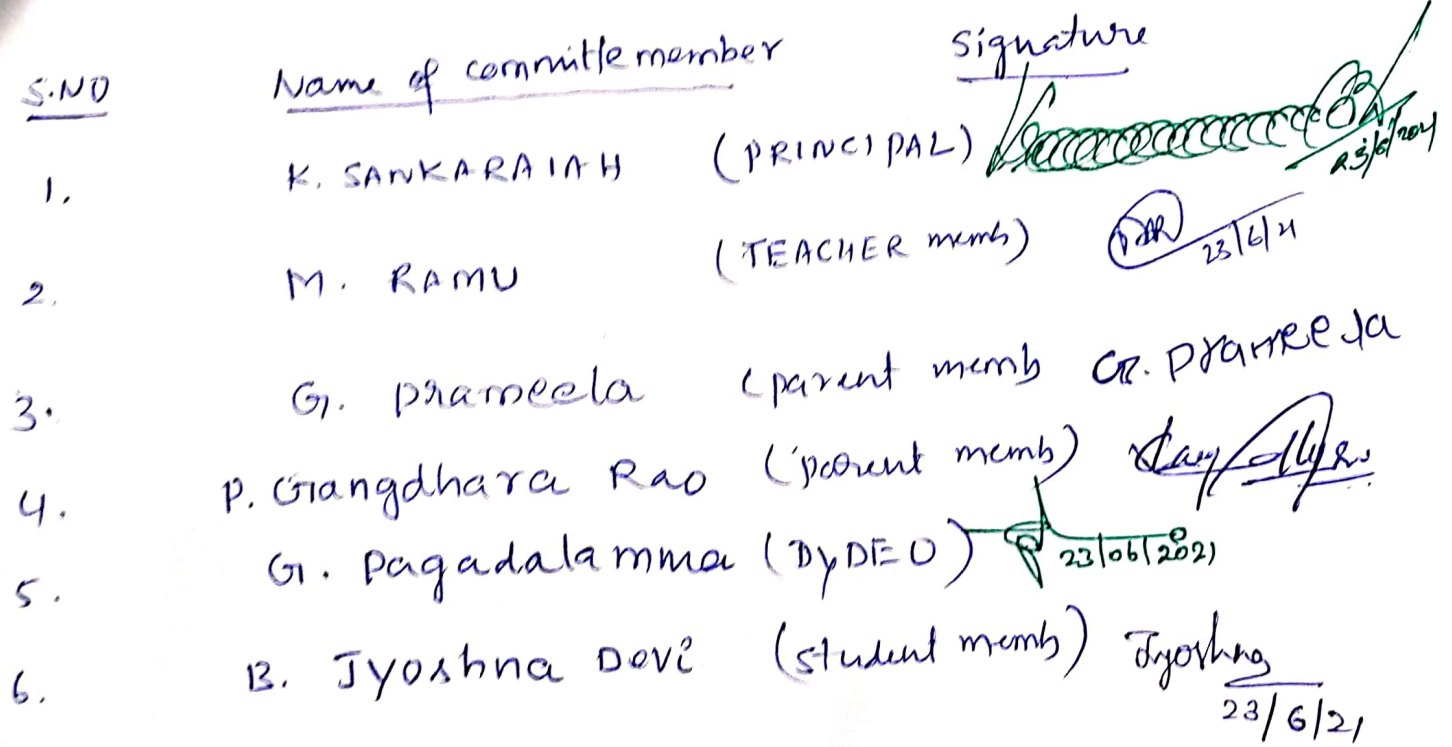 S.NO Name of committe member Signature
1. K. SANKARAIAH (PRINCIPAL) 23/6/2021
2. M. RAMU (TEACHER memb) 23/6/21
3. G. prameela (parent memb G. prameela
4. P. Gangdhara Rao (parent memb)
5. G. Pagadalamma (DyDEO) 23/06/2021
6. B. Jyoshna Devi (student memb) Jyoshna
23/6/21